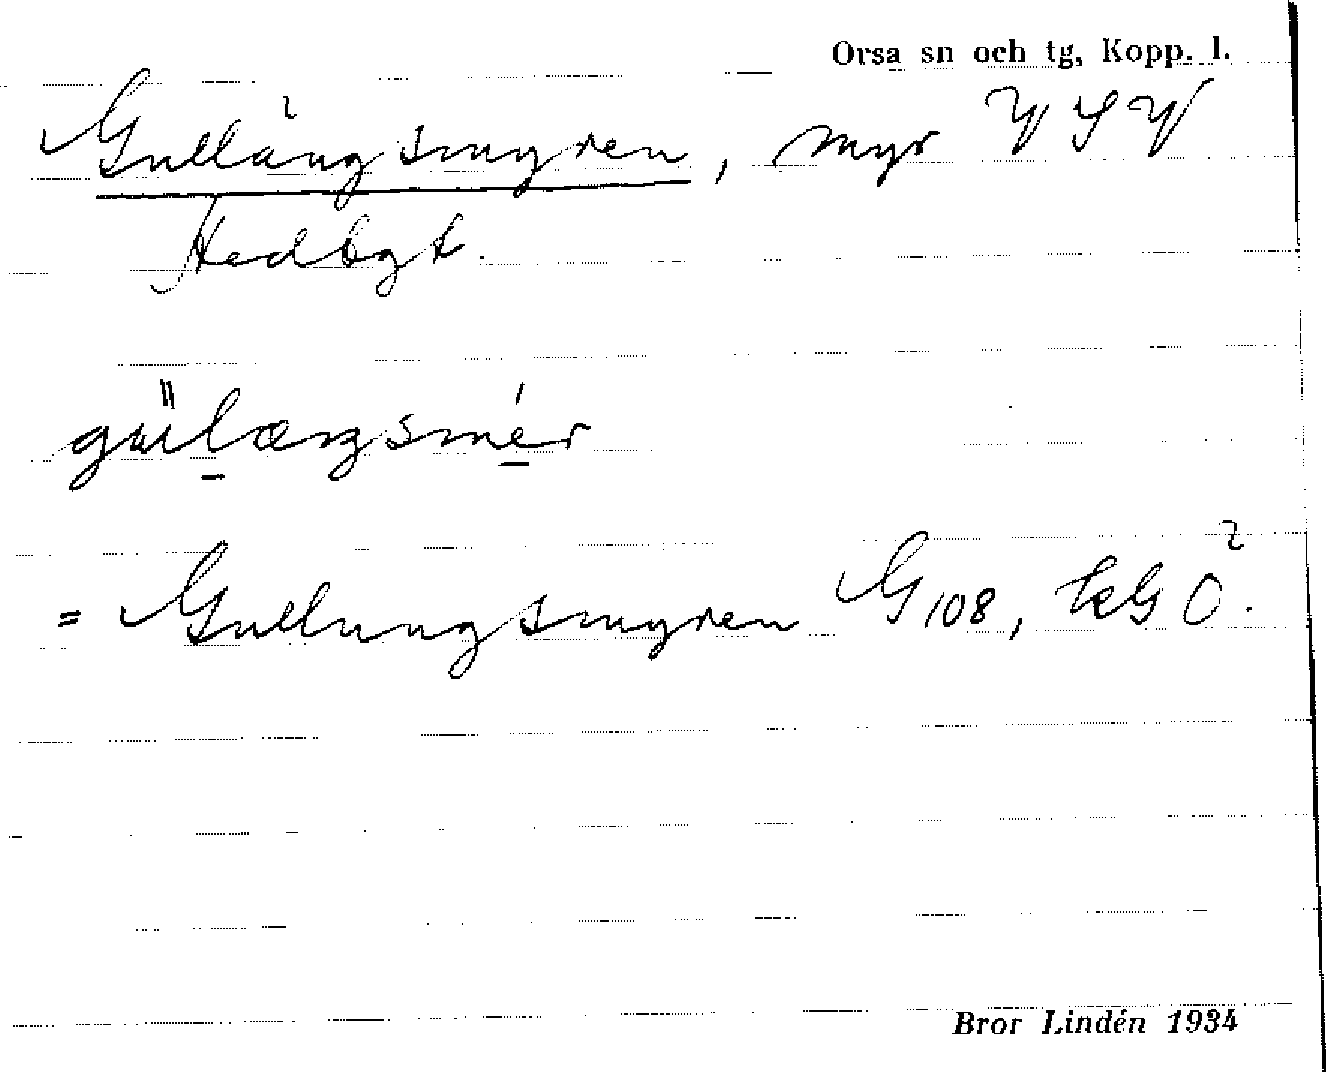 Orsa sn och tg, Kopp. l.
Gullängsmyren, myr VSV
Hedbgt.
= Gullungsmyren G 108, kG Ö.
Bror Lindén 1934